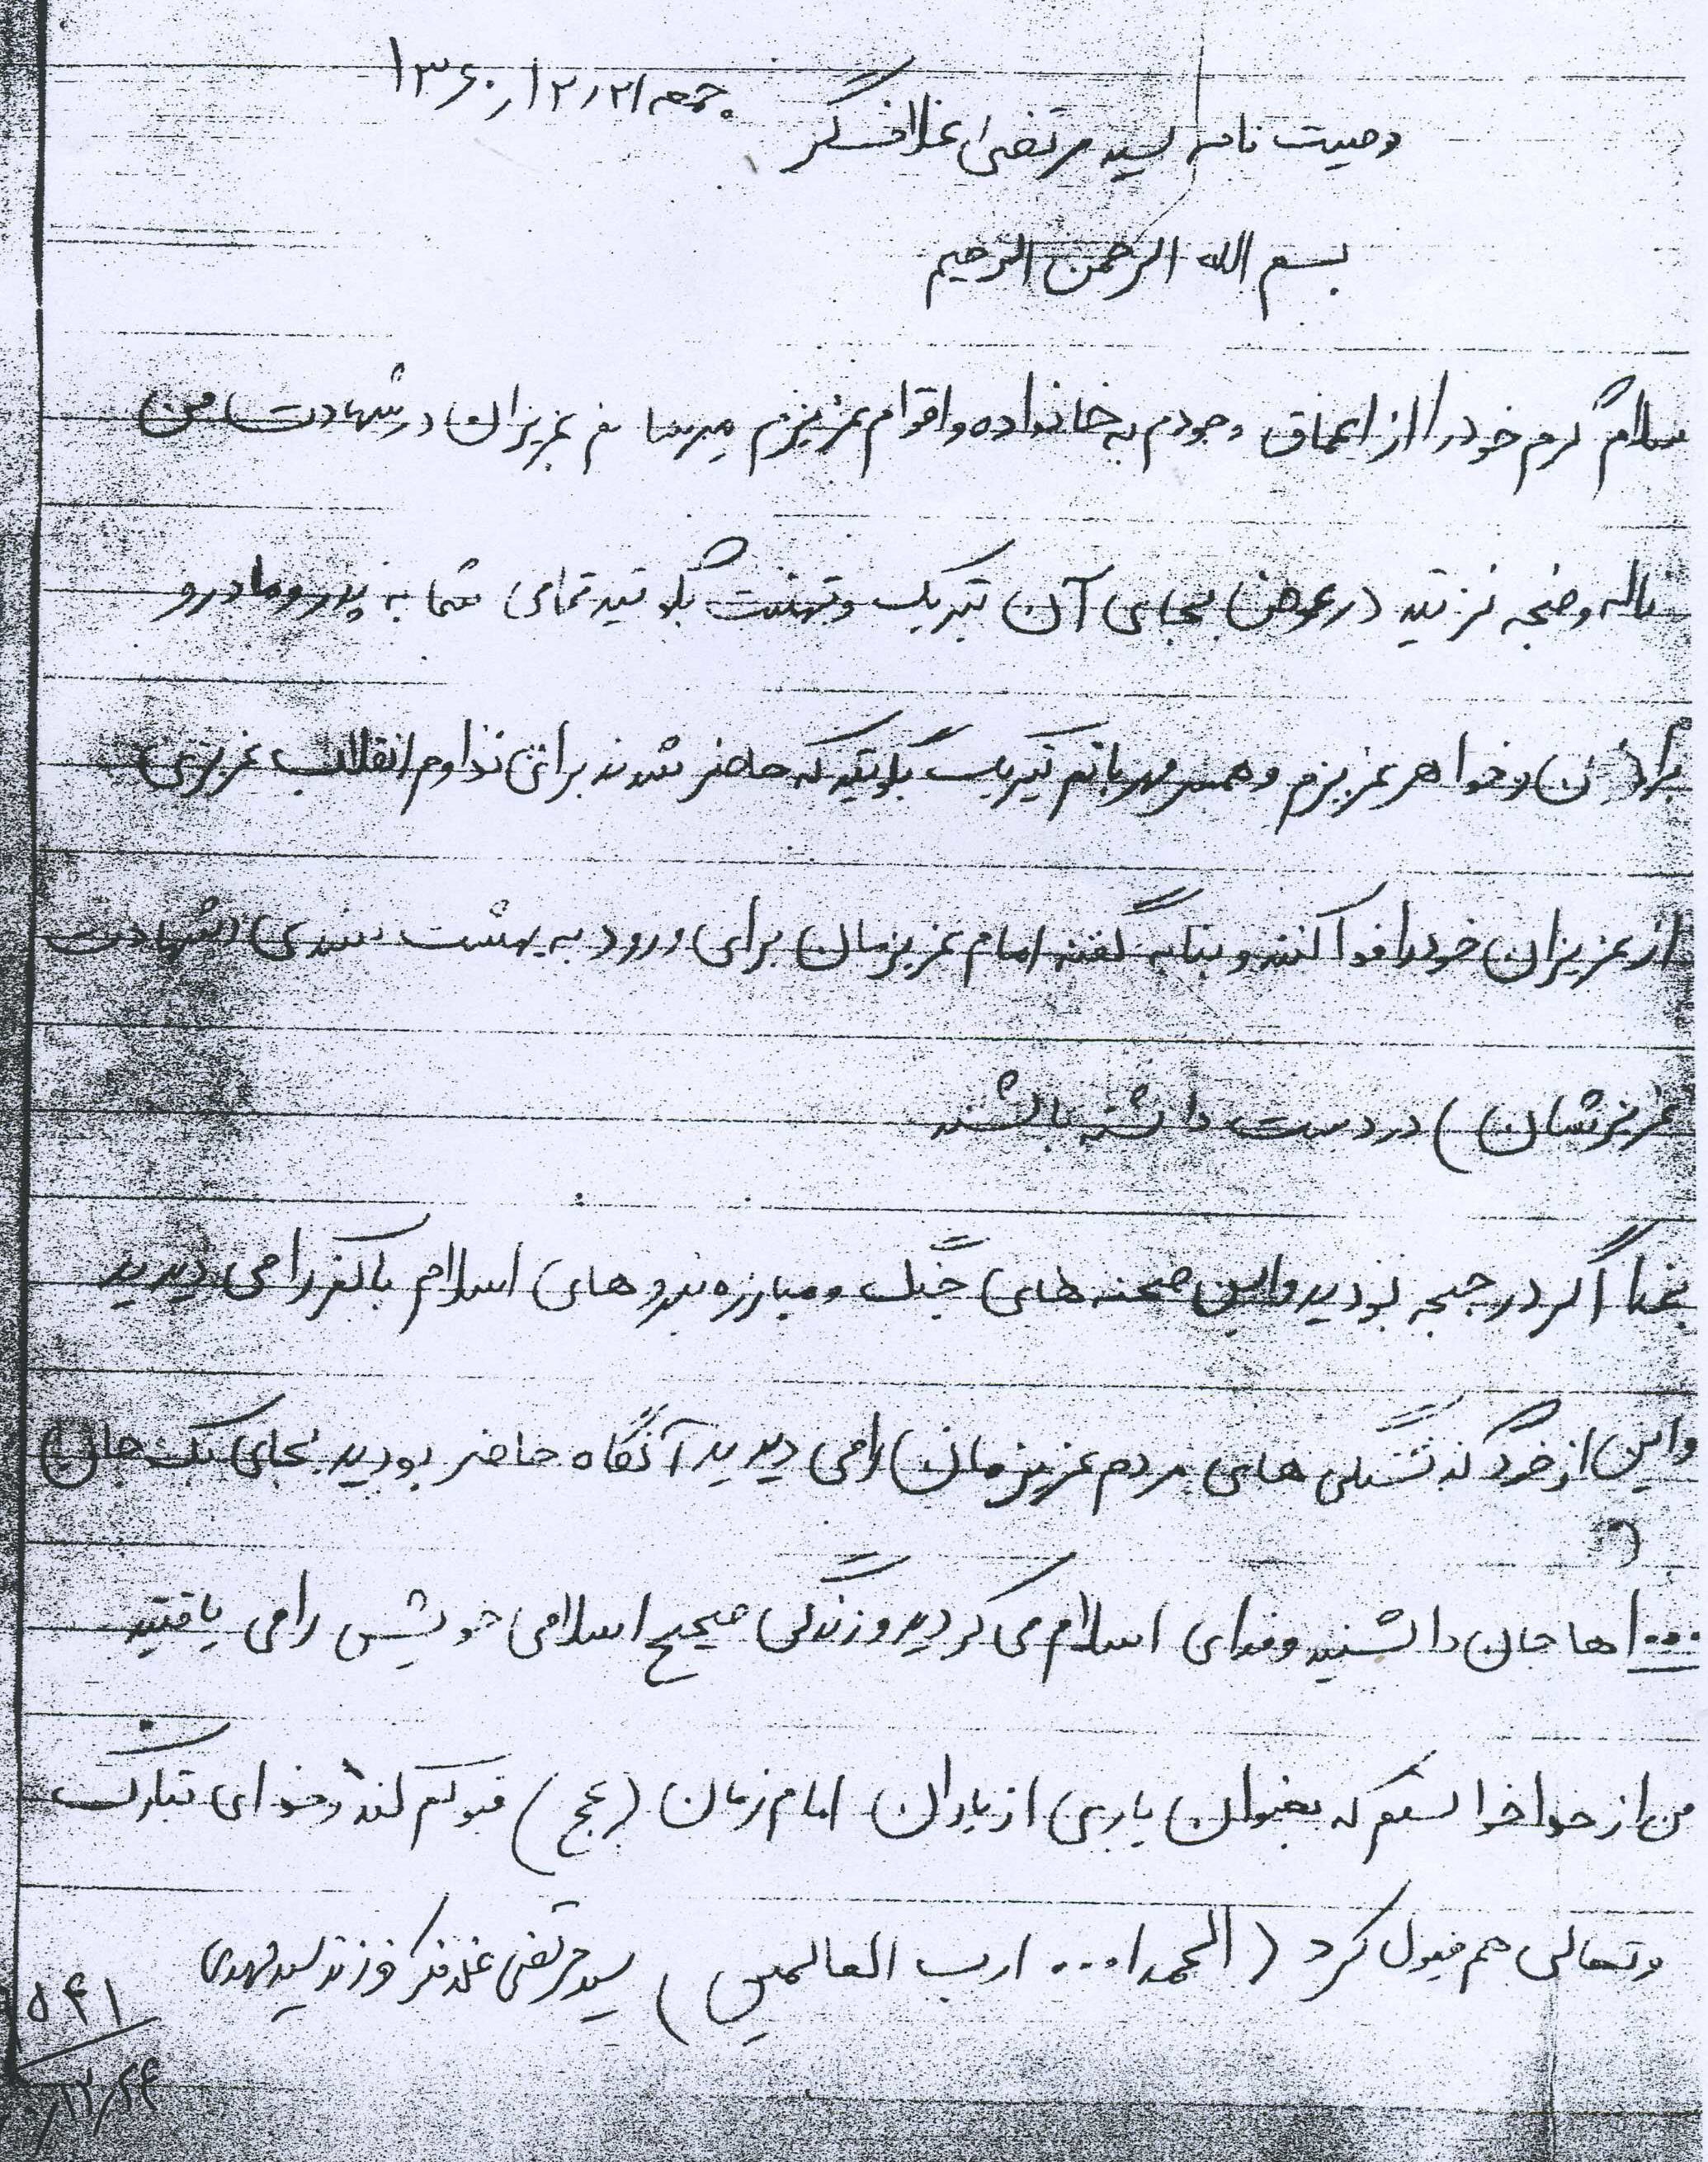 جمعه ۱۳۶۰/۱۲/۲۱
وصیت نامه سید مرتضی غلافگر
بسم الله الرحمن الرحیم
سلام گرم خود را از اعماق وجودم به خانواده و اقوام عزیزم میرسانم عزیزان در شهادت من
ناله و ضجه نزنید در عوض بجای آن تبریک و تهنیت بگوئید تمامی شما به پدر و مادر و
برادران و خواهر عزیزم و همسر مهربانم تبریک بگوئید که حاضر شدند برای تداوم انقلاب عزیزی
از عزیزان خود را فدا کنند و بنا به گفته امام عزیزمان برای ورود به بهشت سندی (شهادت
عزیزشان) در دست داشته باشند
شما اگر در جبهه بودید و این صحنه های جنگ و مبارزه نیروهای اسلام با کفر را می دیدید
و این از خود گذشتگی های مردم عزیزمان را می دیدید آنگاه حاضر بودید بجای یک جان
۱۰۰۰ها جان داشتید و فدای اسلام می کردید و زندگی صحیح اسلامی خویش را می یافتید
من از خدا خواستم که بعنوان یاری از یاران امام زمان (عج) قبولم کند و خدای تبارک
و تعالی هم قبول کرد (الحمدا... رب العالمین) سید مرتضی غلافگر فرزند سید مهدی
۵۴۱
۱۲/۲۴